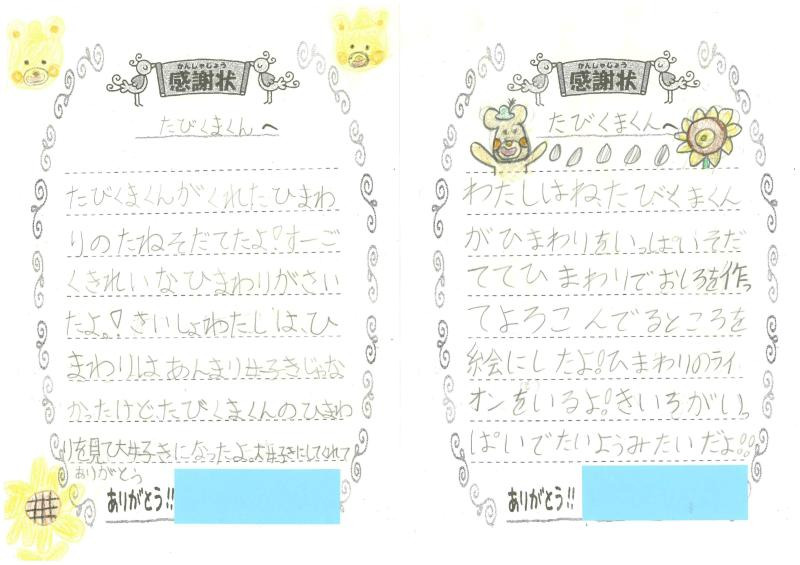 かんしゃじょう
感謝状
たびくまくんへ
たびくまくんがくれたひまわ
りのたねそだてたよ!すーご
くきれいなひまわりがさい
たよ!きいしょわたしは、ひ
まわりはあんまり好きじゃな
かったけど、たびくまくんのひまわ
りを見て大好きになったよ。大好きにしてくれて
ありがとう
ありがとう!!
かんしゃじょう
感謝状
たびくまくんへ
わたしはね、たびくまくん
がひまわりをいっぱいそだ
ててひまわりでおしろを作っ
てよろこんでるところを
絵にしたよ!ひまわりのライ
オンもいるよ!きいろがいっ
ぱいでたいようみたいだよ!!
ありがとう!!